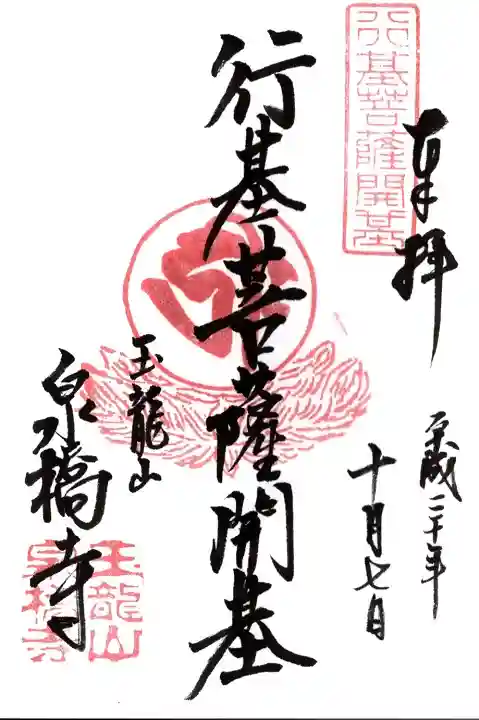 行基菩薩開基
奉拝
平成二十年
十月七日
行基菩薩開基
玉龍山
泉橋寺
玉龍山
泉橋寺